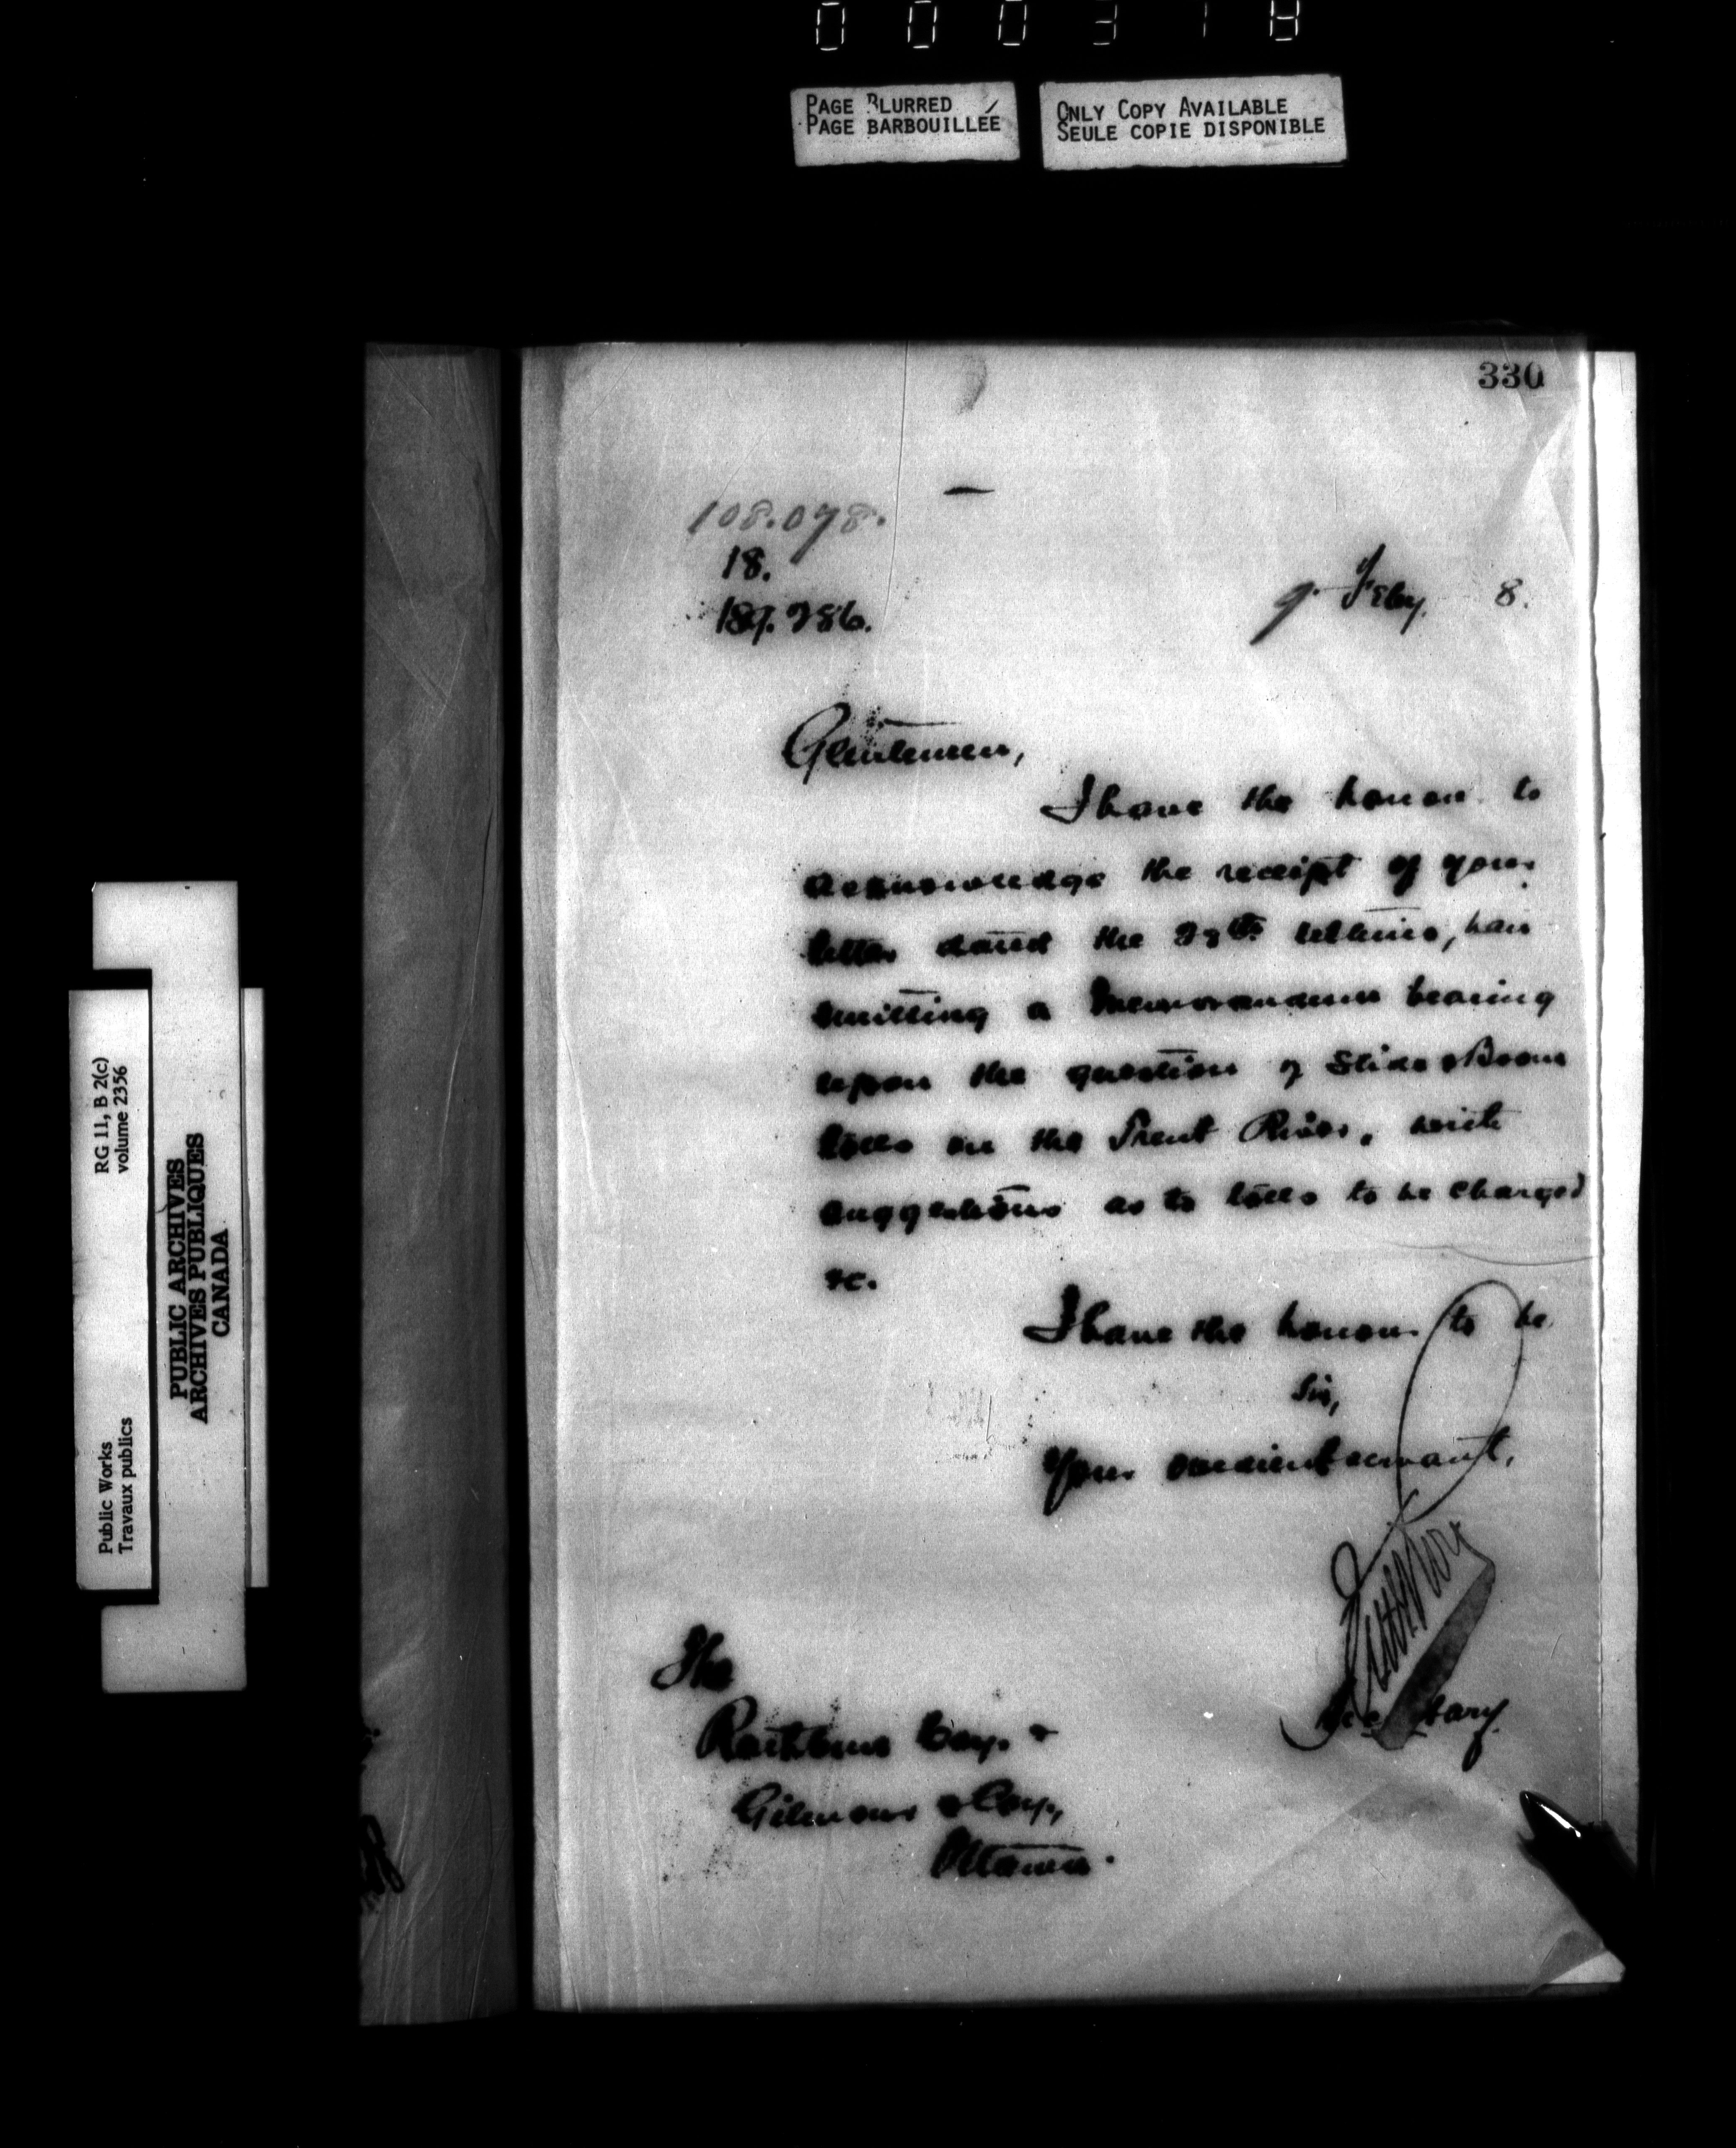 000318
PAGE BLURRED
PAGE BARBOUILLÉE
ONLY COPY AVAILABLE
SEULE COPIE DISPONIBLE
330
108.078.
18.
187.286.
9. Feby. 8.
Gentlemen,
I have the honor to
acknowledge the receipt of your
letter dated the ultimo, tran
smitting a memorandum bearing
upon the question of Slide & Boom
tolls on the Trent River, with
suggestions as to tolls to be charged
&c.
I have the honour to be
Sir,
Your obedient servant,
Secretary
The
Rathbun Coy. &
Gilmour & Coy.,
Ottawa.
RG 11, B 2(c)
volume 2356
Public Works
Travaux publics
PUBLIC ARCHIVES
ARCHIVES PUBLIQUES
CANADA